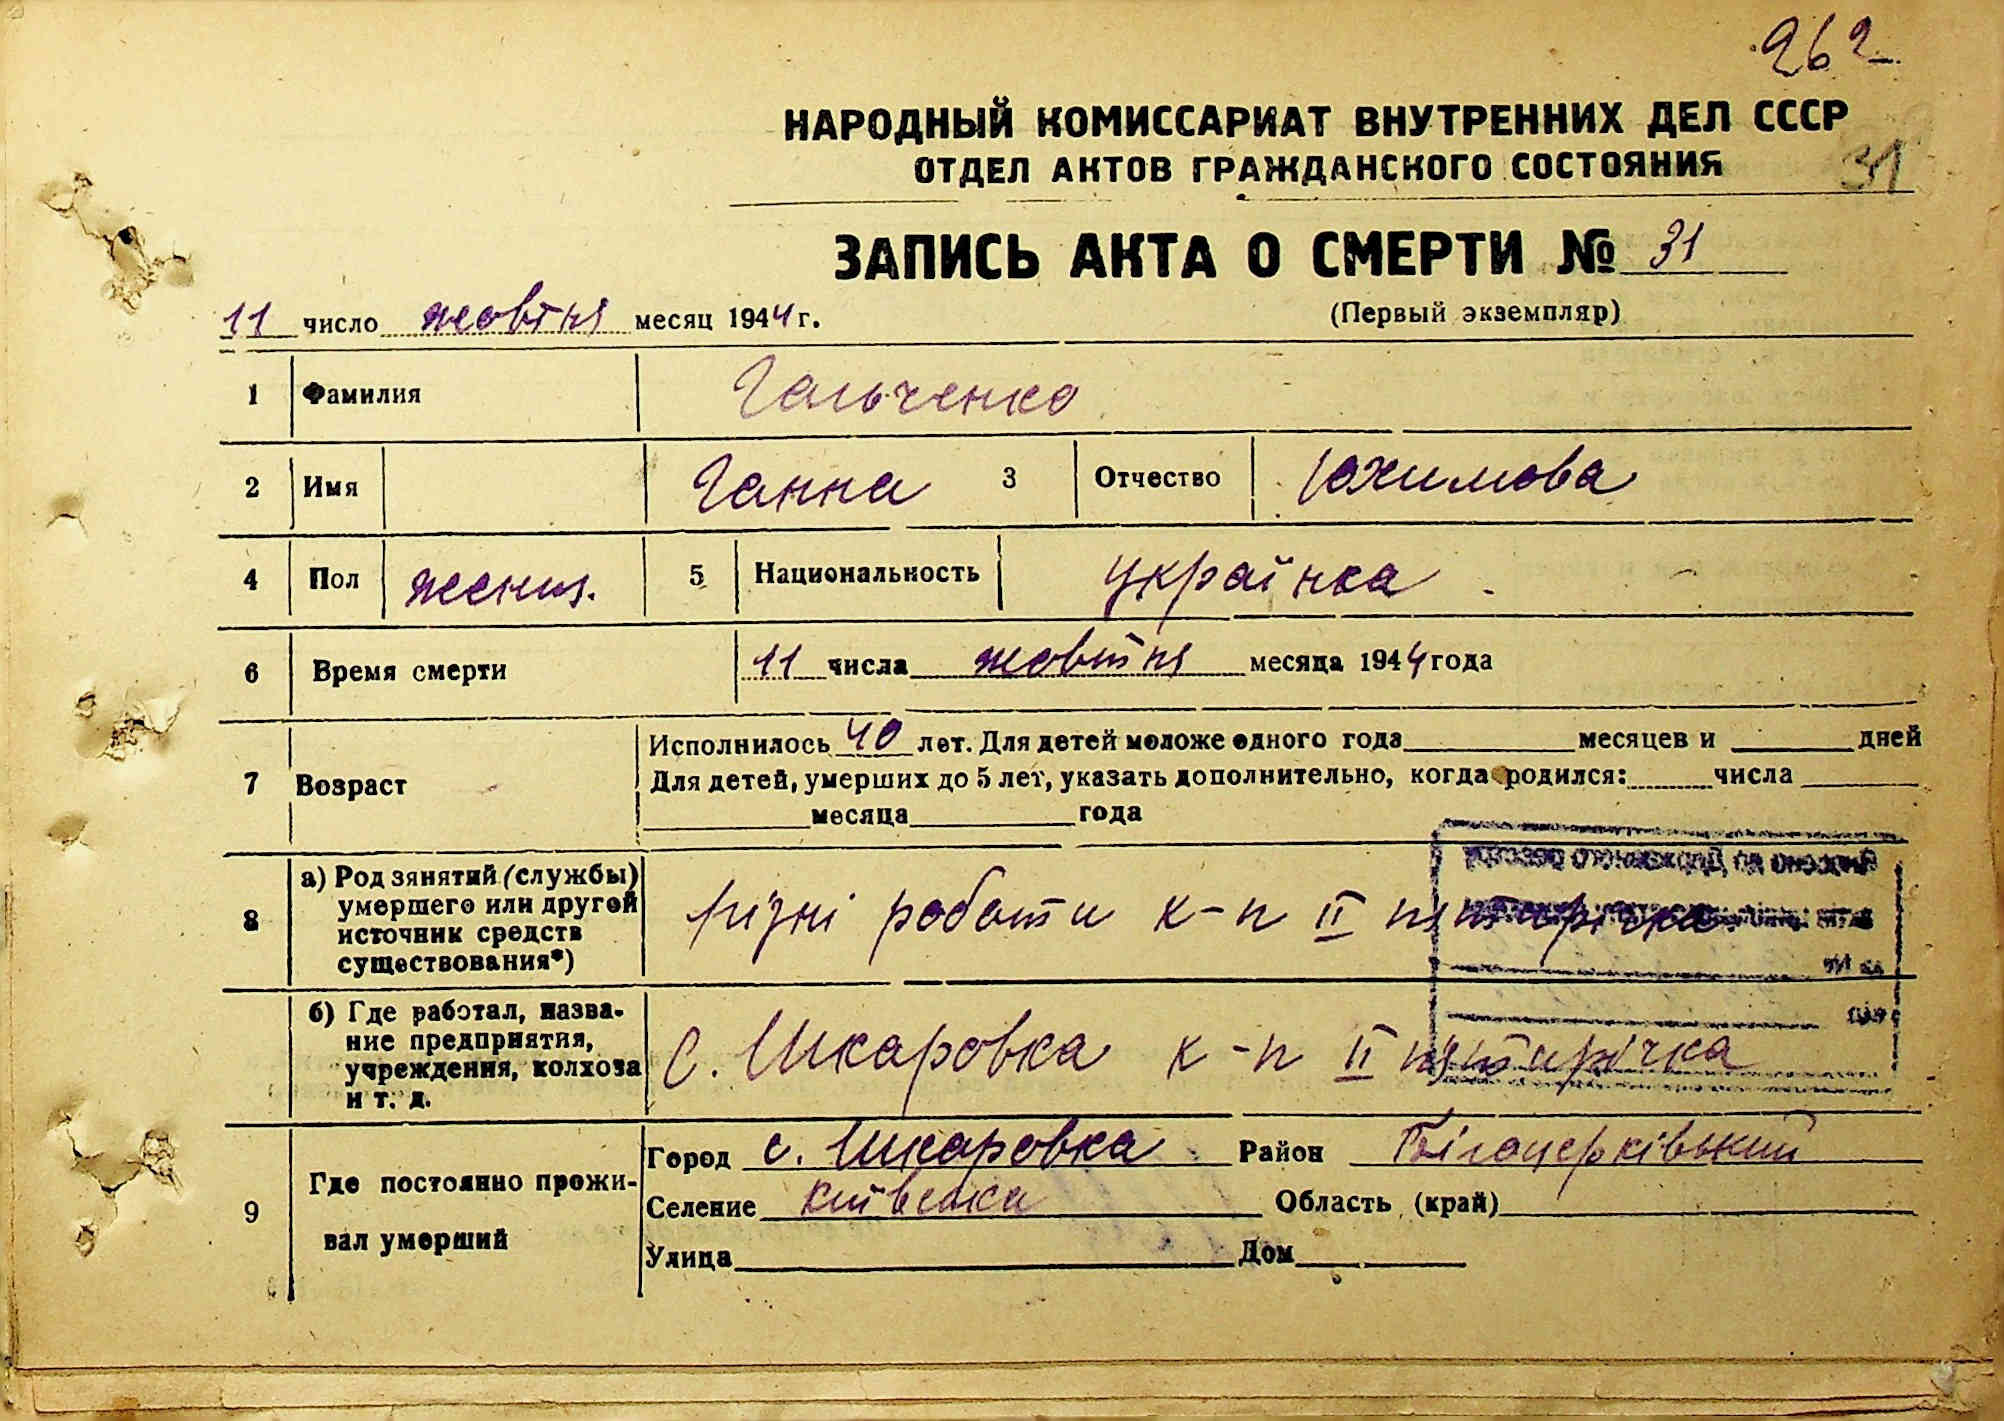 262
НАРОДНЫЙ КОМИССАРИАТ ВНУТРЕННИХ ДЕЛ СССР
ОТДЕЛ АКТОВ ГРАЖДАНСКОГО СОСТОЯНИЯ 31
ЗАПИСЬ АКТА О СМЕРТИ № 31
11 число жовтня месяц 1944 г. (Первый экземпляр)
1 Фамилия Гальченко
2 Имя Ганна 3 Отчество Юхимова
4 Пол женщ. 5 Национальность українка
6 Время смерти 11 числа жовтня месяца 1944 года
7 Возраст
Исполнилось 40 лет. Для детей моложе одного года месяцев и дней
Для детей, умерших до 5 лет, указать дополнительно, когда родился: числа
месяца года
8 а) Род зянятий (службы)
умершего или другой
источник средств
существования*)
різні роботи к-п II пятирічка
б) Где работал, назва-
ние предприятия,
учреждения, колхоза
и т. д.
с. Шкаровка к-п II пятирічка
9 Где постоянно прожи-
вал умерший
Город с. Шкаровка Район Білоцерківький
Селение Київська Область (край)
Улица Дом